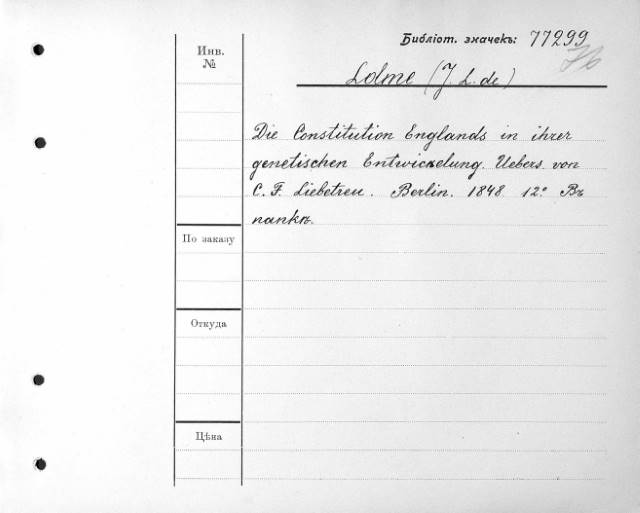 Библіот. значекъ: 77299
Инв.
№
Lolme (J. L. de)
Die Constitution Englands in ihrer
genetischen Entwickelung. Uebers. von
C. F. Liebetreu. Berlin. 1848 12° Въ
папкѣ.
По заказу
Откуда
Цѣна